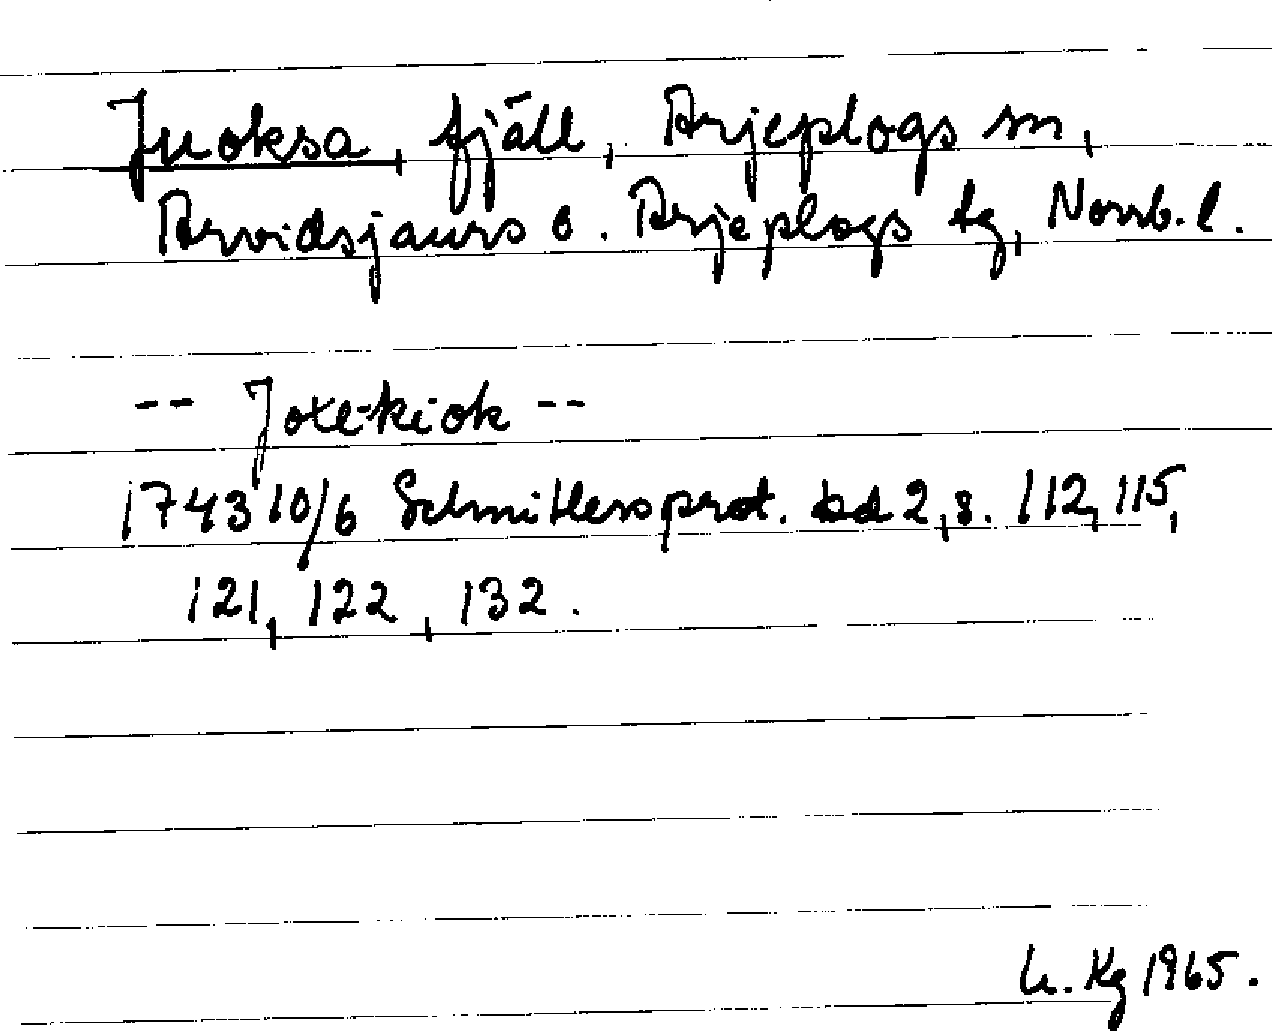 Juoksa, fjäll, Arjeplogs sn,
Arvidsjaurs o. Arjeplogs tg, Norrb. l.
-- Joxe-kiok --
1743 10/6 Schnitlersprot. bd 2, s. 112, 115,
121, 122, 132.
U. Kg 1965.